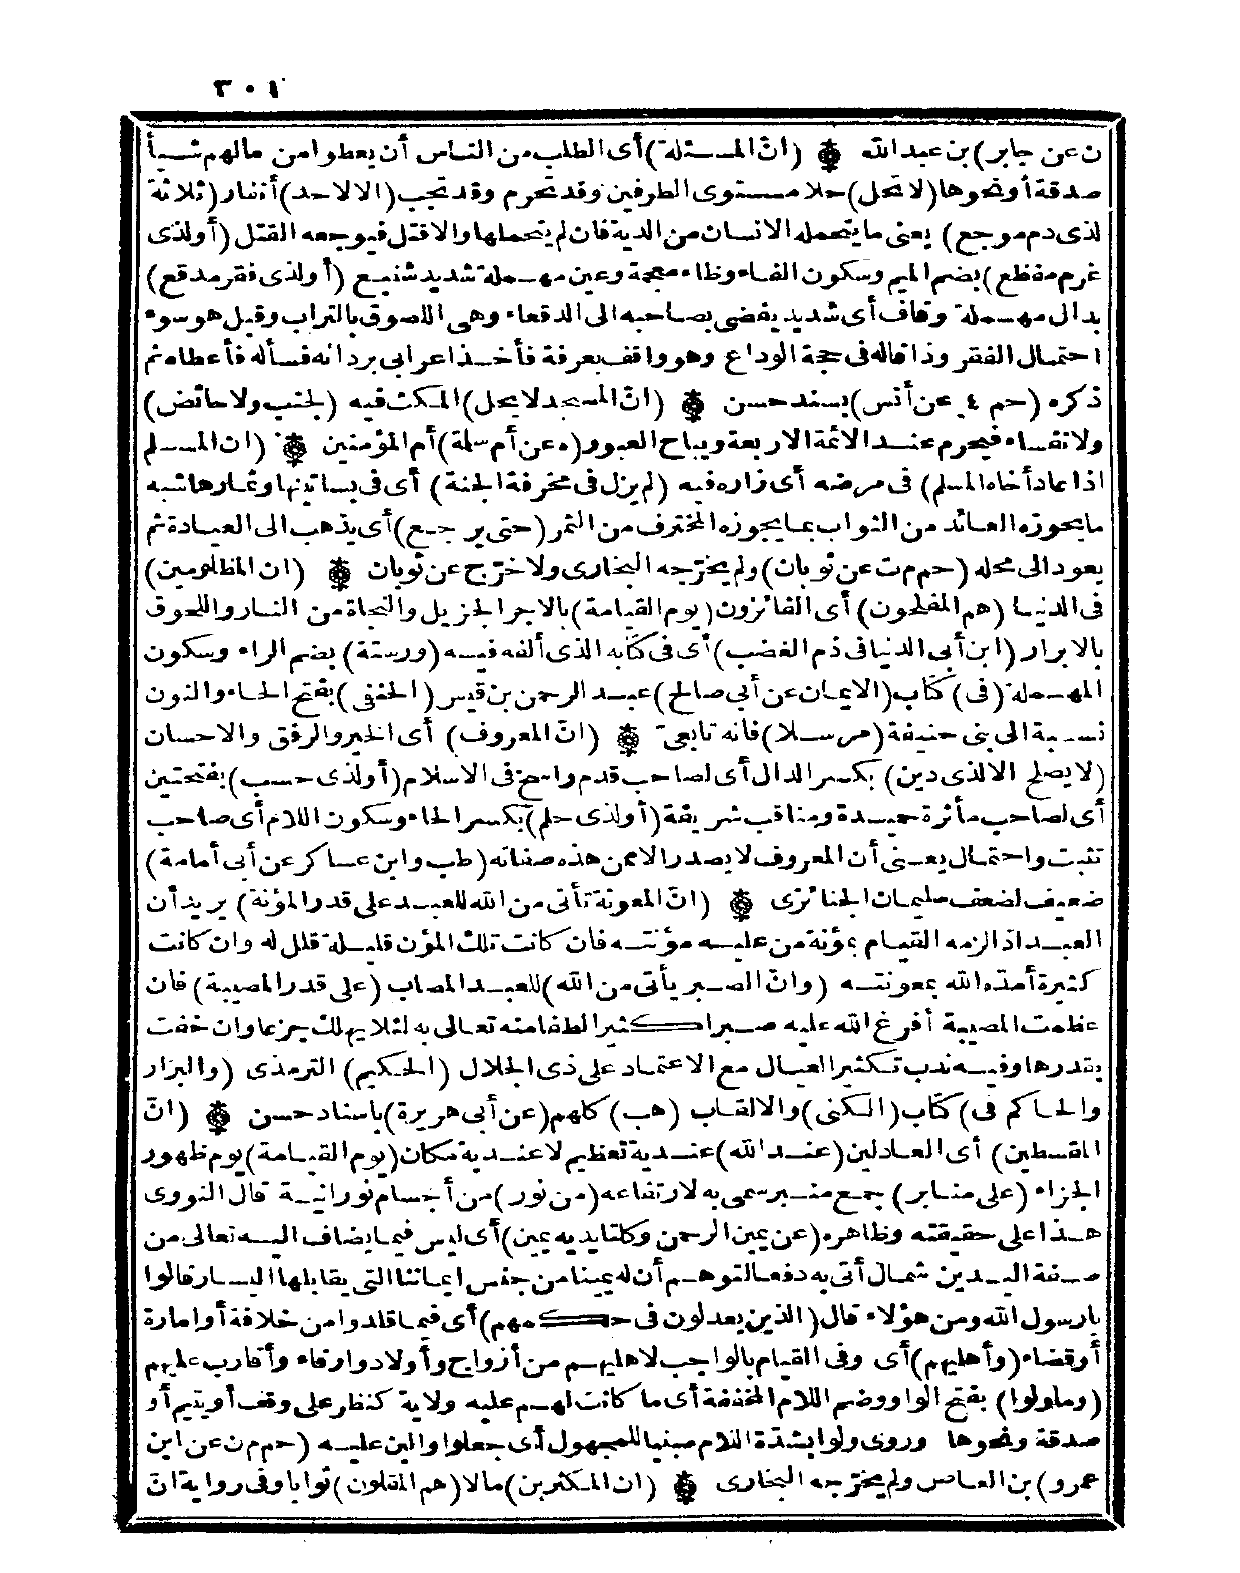 ٣٠١
ن عن جابر) بن عبد الله ۞ (انّ المسئلة) أى الطلب من الناس أن يعطوا من مالهم شيأ
صدقة أو نحوها (لا تحل) حلا مستوى الطرفين وقد تحرم وقد تجب (الا لاحد) أنفار (ثلاثة
لذى دم موجع) يعنى ما يتحمله الانسان من الدية فان لم يتحملها والا قتل فيوجعه القتل (أو لذى
غرم مفظع) بضم الميم وسكون الفاء وظاء معجمة وعين مهملة شديد شنيع (أو لذى فقر مدقع)
بدال مهملة وقاف أى شديد يفضى بصاحبه الى الدقعاء وهى اللصوق بالتراب وقيل هو سوء
احتمال الفقر وذا قاله فى حجة الوداع وهو واقف بعرفة فأخذ اعرابى بردائه فسأله فأعطاه ثم
ذكره (حم ٤ عن أنس) بسند حسن ۞ (انّ المسجد لا يحل) المكث فيه (لجنب ولا حائض)
ولا نفساء فيحرم عند الائمة الاربعة ويباح العبور (ه عن أم سلة) أم المؤمنين ۞ (ان المسلم
اذا عاد أخاه المسلم) فى مرضه أى زاره فيه (لم يزل فى مخرفة الجنة) أى فى بساتينها وثمارها شبه
ما يحوزه العائد من الثواب بما يحوزه المخترف من الثمر (حتى يرجع) أى يذهب الى العيادة ثم
يعود الى محله (حم م ت عن ثوبان) ولم يخرّجه البخارى ولا خرّج عن ثوبان ۞ (ان المظلومين)
فى الدنيا (هم المفلحون) أى الفائزون (يوم القيامة) بالاجر الجزيل والنجاة من النار واللحوق
بالابرار (ابن أبى الدنيا فى ذم الغضب) أى فى كتابه الذى ألفه فيه (ورستة) بضم الراء وسكون
المهملة (فى) كتاب (الايمان عن أبى صالح) عبد الرحمن بن قيس (الحنفى) بفتح الحاء والنون
نسبة الى بنى حنيفة (مرسلا) فانه تابعىّ ۞ (انّ المعروف) أى الخير والرفق والاحسان
(لا يصلح الا لذى دين) بكسر الدال أى لصاحب قدم راسخ فى الاسلام (أو لذى حسب) بفتحتين
أى لصاحب مأثرة حميدة ومناقب شريفة (أو لذى حلم) بكسر الحاء وسكون اللام أى صاحب
تثبت واحتمال يعنى أن المعروف لا يصدر الا ممن هذه صفاته (طب وابن عساكر عن أبى أمامة)
ضعيف لضعف سليمان الجنائزى ۞ (انّ المعونة تأتى من الله للعبد على قدر المؤنة) يريد أن
العبد اذا لزمه القيام بمؤنة من عليه مؤنته فان كانت تلك المؤن قليلة قلل له وان كانت
كثيرة أمدّه الله بمعونته (وانّ الصبر يأتى من الله) للعبد المصاب (على قدر المصيبة) فان
عظمت المصيبة أفرغ الله عليه صبرا كثيرا لطفا منه تعالى به لئلا يهلك جزعا وان خفت
بقدرها وفيه ندب تكثير العيال مع الاعتماد على ذى الجلال (الحكيم) الترمذى (والبزار
والحاكم فى) كتاب (الكنى) والالقاب (هب) كلهم (عن أبى هريرة) باسناد حسن ۞ (انّ
المقسطين) أى العادلين (عند الله) عندية تعظيم لا عندية مكان (يوم القيامة) يوم ظهور
الجزاء (على منابر) جمع منبر سمى به لارتفاعه (من نور) من أجسام نورانية قال النووى
هذا على حقيقته وظاهره (عن يمين الرحمن وكلتا يديه يمين) أى ليس فيما يضاف اليه تعالى من
صفة اليدين شمال أتى به دفعا لتوهم أن له يمينا من جنس ايماننا التى يقابلها اليسار قالوا
يا رسول الله ومن هؤلاء قال (الذين يعدلون فى حكمهم) أى فيما قلدوا من خلافة أو امارة
أو قضاء (وأهليهم) أى وفى القيام بالواجب لاهليهم من أزواج وأولاد وارقاء وأقارب عليهم
(وما ولوا) بفتح الواو وضم اللام المخففة أى ما كانت لهم عليه ولاية كنظر على وقف أو يتيم أو
صدقة ونحوها وروى ولوا بشدّة اللام مبنيا للمجهول أى جعلوا والين عليه (حم م ن عن ابن
عمرو) بن العاص ولم يخرّجه البخارى ۞ (ان المكثرين) مالا (هم المقلون) ثوابا وفى رواية انّ